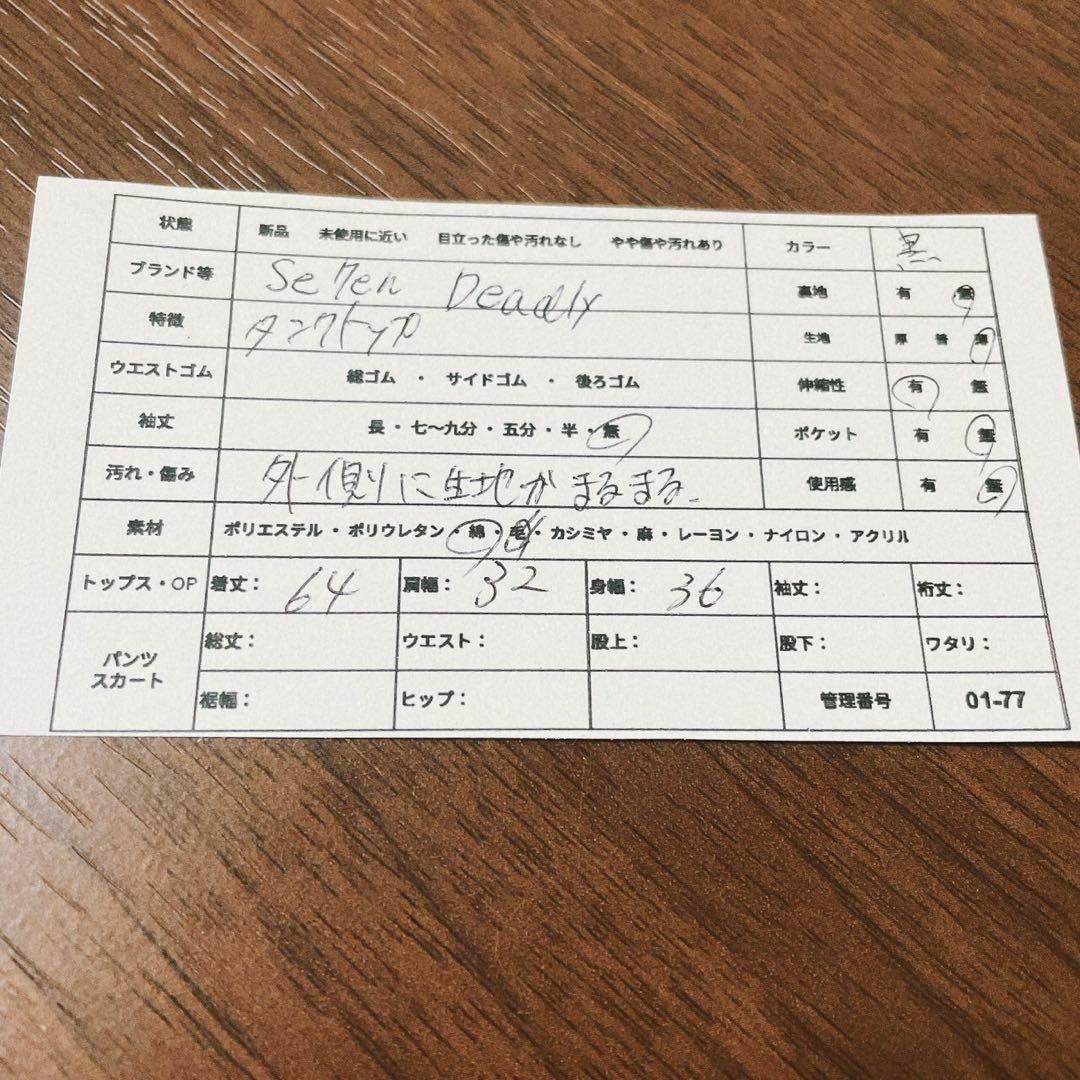 状態 新品 未使用に近い 目立った傷や汚れなし やや傷や汚れあり カラー 黒
ブランド等 Se7en Deadly 裏地 有 無
特徴 タンクトップ 生地 厚 普 薄
ウエストゴム 総ゴム ・ サイドゴム ・ 後ろゴム 伸縮性 有 無
袖丈 長・七〜九分・五分・半・無 ポケット 有 無
汚れ・傷み 外側に生地がまるまる。 使用感 有 無
素材 ポリエステル・ポリウレタン・綿・毛・カシミヤ・麻・レーヨン・ナイロン・アクリル
トップス・OP 着丈: 64 肩幅: 32 身幅: 36 袖丈: 裄丈:
パンツ スカート 総丈: ウエスト: 股上: 股下: ワタリ:
裾幅: ヒップ: 管理番号 01-77